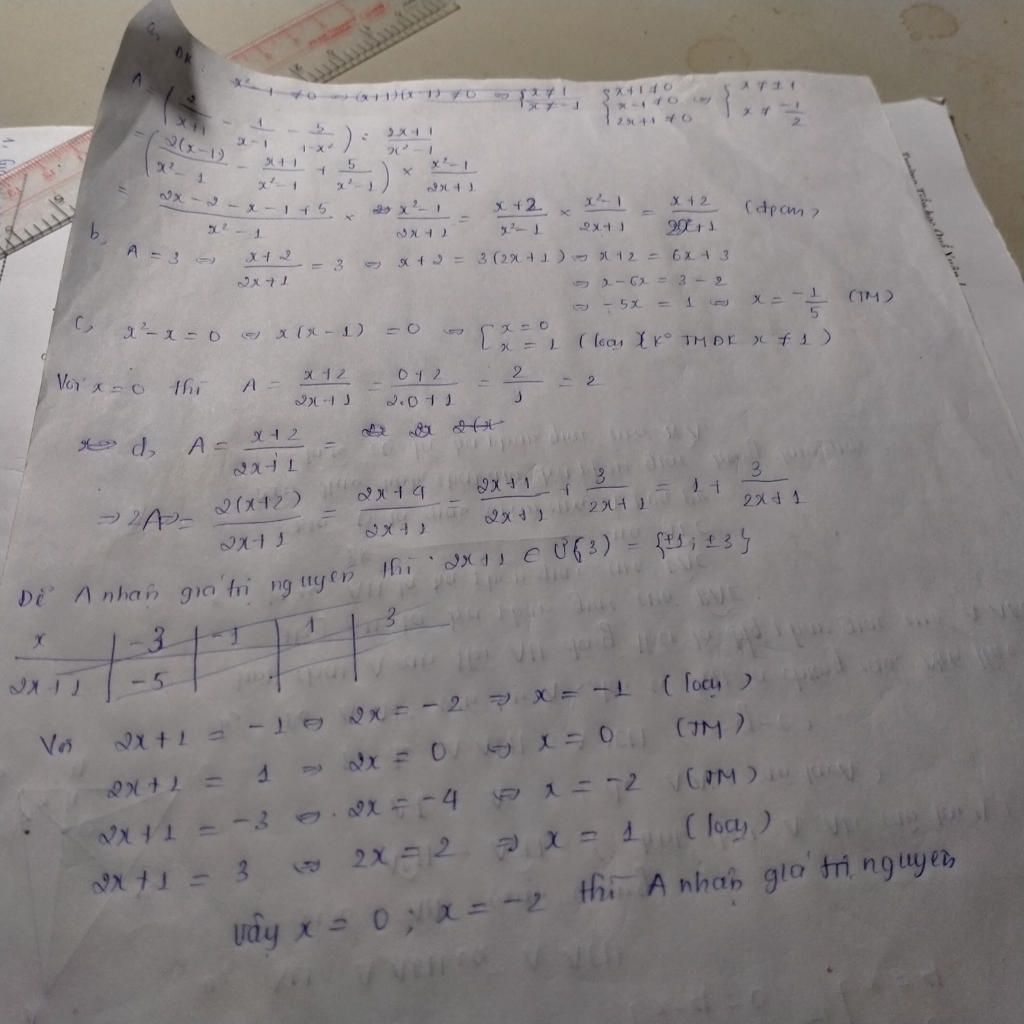 a, ĐK: x² - 1 ≠ 0 ⇔ (x+1)(x-1) ≠ 0 ⇔ { x ≠ 1 x ≠ -1 { x+1 ≠ 0 x-1 ≠ 0 2x+1 ≠ 0 ⇔ { x ≠ ±1 x ≠ -1/2
A = (2/(x+1) - 1/(x-1) - 5/(1-x²)) : (2x+1)/(x²-1)
= (2(x-1)/(x²-1) - (x+1)/(x²-1) + 5/(x²-1)) × (x²-1)/(2x+1)
= (2x-2-x-1+5)/(x²-1) × (x²-1)/(2x+1) = (x+2)/(x²-1) × (x²-1)/(2x+1) = (x+2)/(2x+1) (đpcm)
b,
A = 3 ⇔ (x+2)/(2x+1) = 3 ⇔ x+2 = 3(2x+1) ⇔ x+2 = 6x+3
⇔ x-6x = 3-2
⇔ -5x = 1 ⇔ x = -1/5 (TM)
c, x²-x = 0 ⇔ x(x-1) = 0 ⇔ [ x = 0 x = 1 (loại K° TMĐK x ≠ 1)
Với x = 0 thì A = (x+2)/(2x+1) = (0+2)/(2.0+1) = 2/1 = 2
d, A = (x+2)/(2x+1) =
⇒ 2A = 2(x+2)/(2x+1) = (2x+4)/(2x+1) = (2x+1)/(2x+1) + 3/(2x+1) = 1 + 3/(2x+1)
Để A nhận giá trị nguyên thì 2x+1 ∈ Ư(3) = {±1; ±3}
x | -3 | -1 | 1 | 3
2x+1 | -5
Với 2x+1 = -1 ⇔ 2x = -2 ⇒ x = -1 (loại)
2x+1 = 1 ⇒ 2x = 0 ⇔ x = 0 (TM)
2x+1 = -3 ⇔ 2x = -4 ⇔ x = -2 (TM)
2x+1 = 3 ⇔ 2x = 2 ⇒ x = 1 (loại)
Vậy x = 0; x = -2 thì A nhận giá trị nguyên